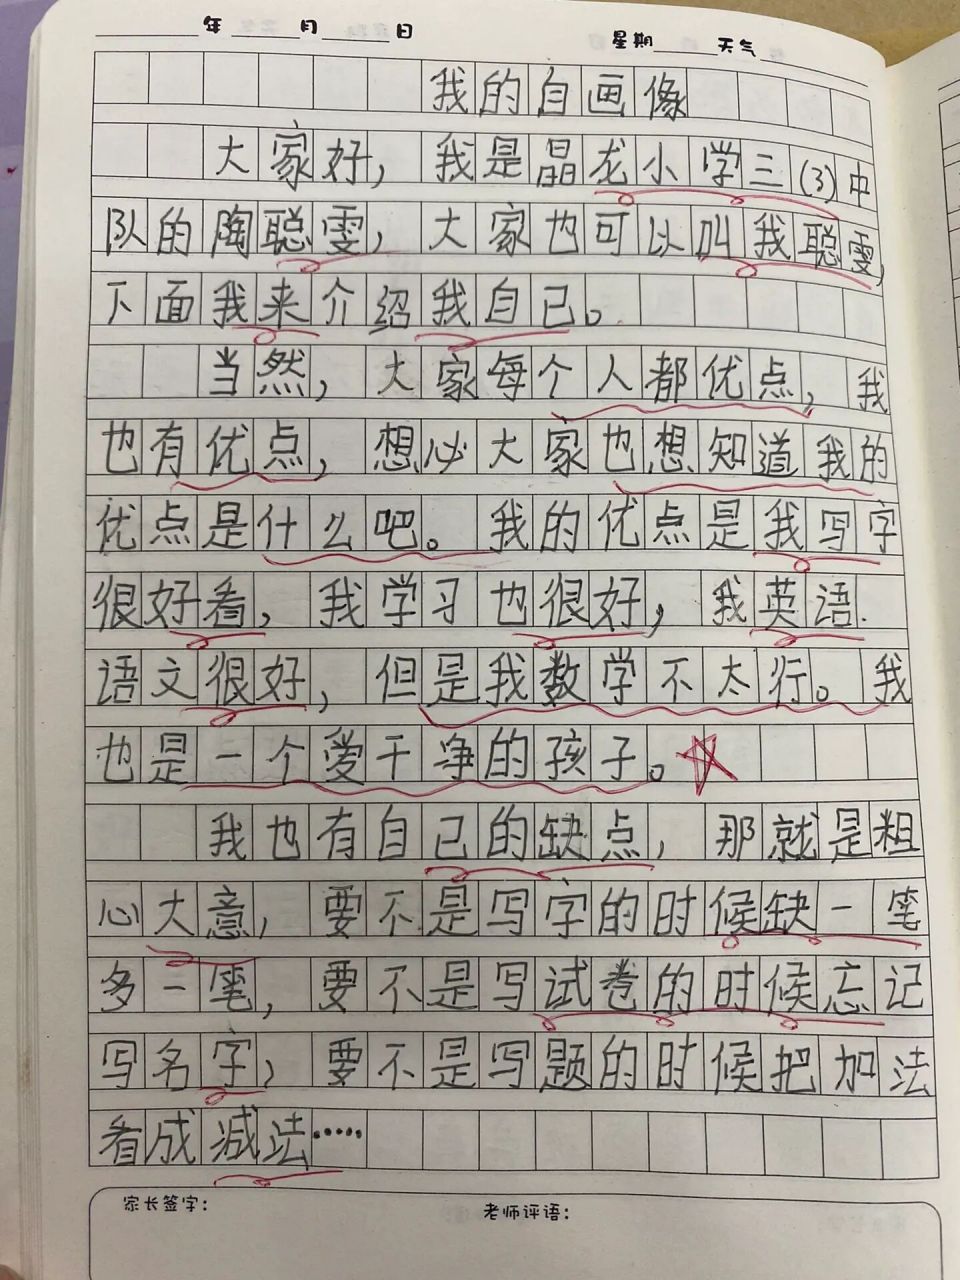 年 月 日 星期 天气
我的自画像
大家好，我是晶龙小学三(3)中
队的陶聪雯，大家也可以叫我聪雯，
下面我来介绍我自己。
当然，大家每个人都优点，我
也有优点，想必大家也想知道我的
优点是什么吧。我的优点是我写字
很好看，我学习也很好，我英语.
语文很好，但是我数学不太行。我
也是一个爱干净的孩子。
我也有自己的缺点，那就是粗
心大意，要不是写字的时候缺一笔
多一笔，要不是写试卷的时候忘记
写名字，要不是写题的时候把加法
看成减法……
家长签字： 老师评语：